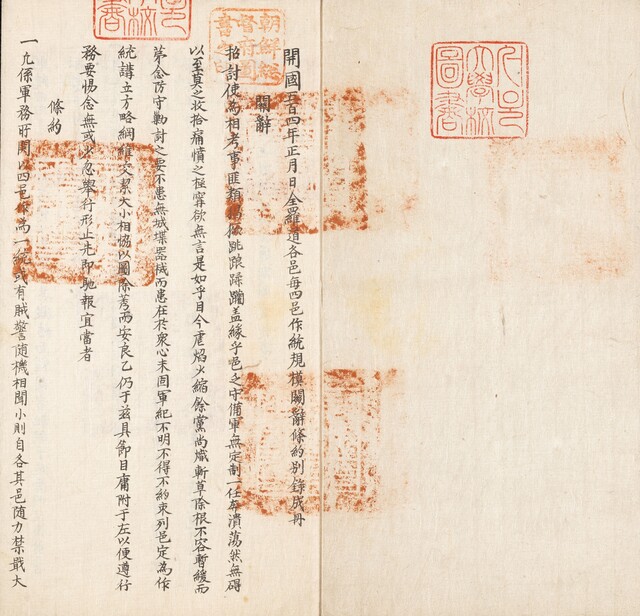 開國五百四年正月日全羅道各邑每四邑作統規模關辭條約別錄成冊
關辭
招討使爲相考事匪類猖獗跳踉蹂躪盖緣乎邑之守備軍無定制一任奔潰蕩然無碍
以至莫之收拾痛憤之極寧欲無言是如乎目今虐焰少縮餘黨尚熾斬草除根不容暫緩而
第念防守勦討之要不患無城堞器械而患在於衆心未固軍紀不明不得不約束列邑定爲作
統講立方略綱維交絜大小相協以圖除莠而安良乙仍于玆具節目庸附于左以便遵行
務要惕念無或少忽擧行形止先即馳報宜當者
條約
一凡係軍務所關以四邑作爲一統或有賊警随機相聞小則自各其邑随力禁戢大
朝鮮總督府圖書
大學校圖書